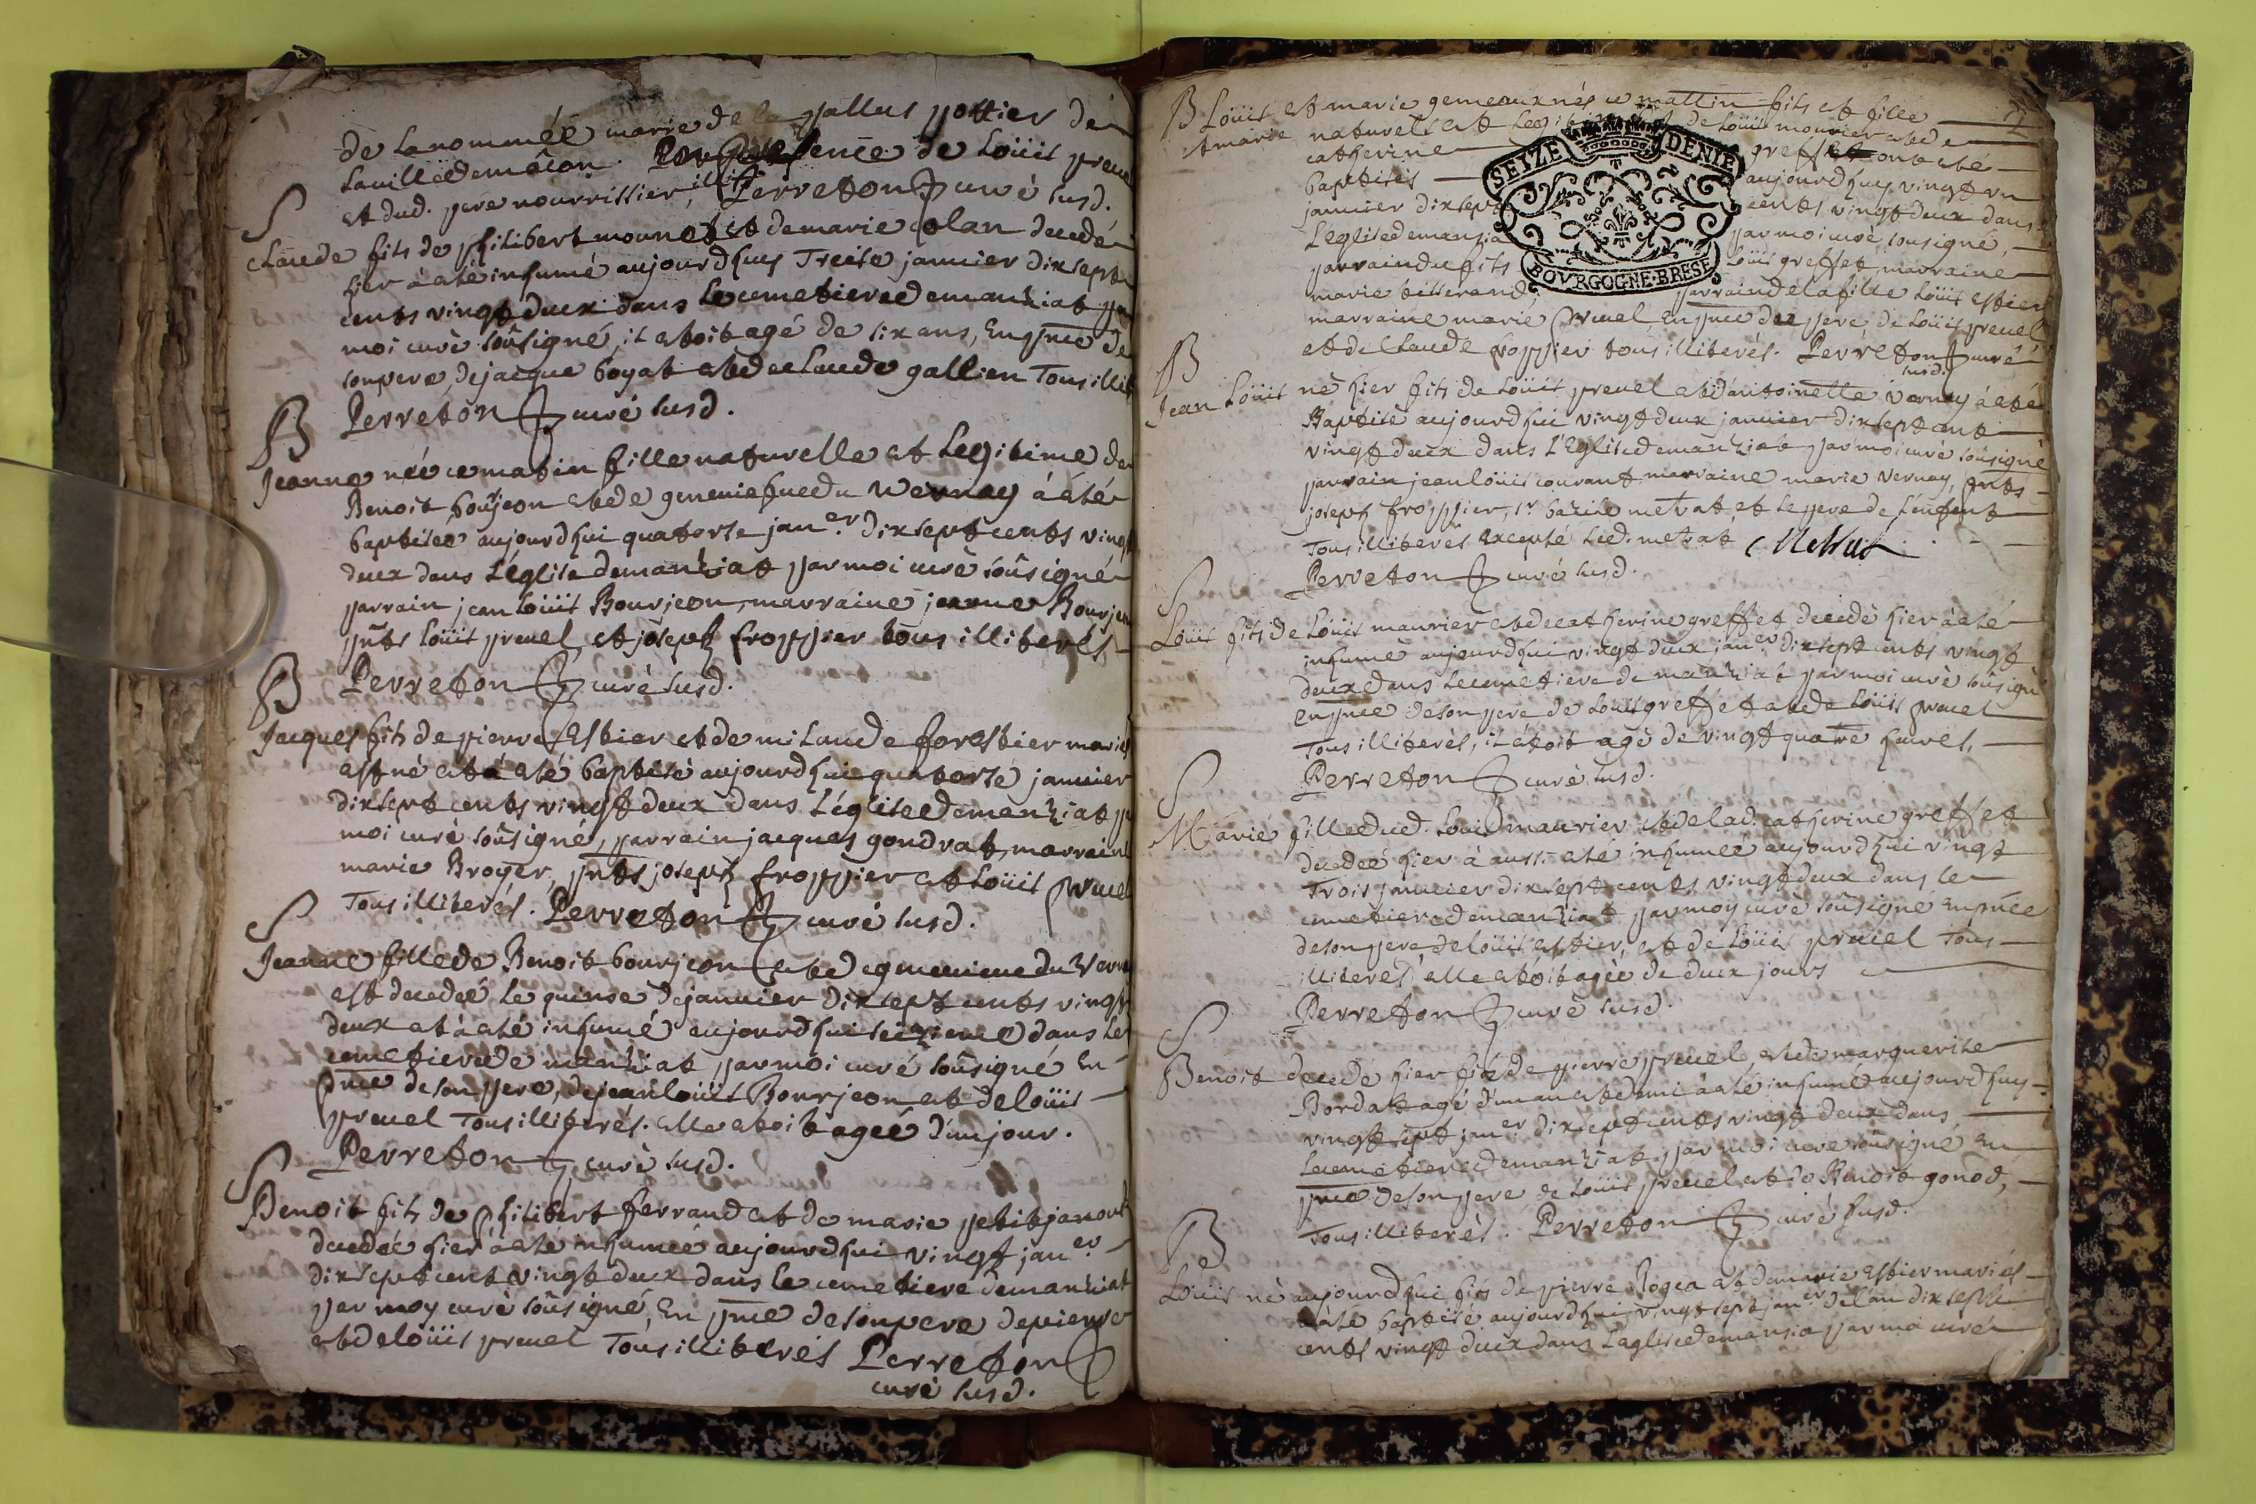 de la nommée marie de la pallus pottier de
la ville de mâcon. En presence de Loüis preuel
et dud. pere nourrissier, illit. Perreton curé susd.
S
Claude fils de philibert mounet et de marie colan decedé
hier à été inhumé aujourdhuy Treise januier dix sept
cents vingt deux dans le cemetiere de manziat par
moi curé soûsigné, il etoit agé de six ans, En pnce de
son pere, de jacque boyat et de claude gallien Tous illit
Perreton curé susd.
B
Jeanne née ce matin fille naturelle et Legitime de
Benoit boujeon et de geneviefue du Vernay á eté
baptiseé aujourdhui quatorse janer. dix sept cents vingt
deux dans L'église de manziat par moi curé soûsigné
parrain jean Loüis Bourjeon, marraine jeanne Bourjeon
pnts Loüis preuel et joseph froppier toûs illiterés
Perreton curé susd.
B
Jacques fils de pierre Estier et de mi Laude forestier mariés
est né et á eté baptisé aujourdhui quatorsé januier
dix sept cents vingt deux dans L'église de manziat par
moi curé soûsigné, parrain jacques gondrat, marraine
marie Broyer, pnts joseph froppier et Loüis preuel
Tous illiterés. Perreton curé susd.
S
Jeanne fille de Benoit bourjeon et de genevieve du Vernay
est decedeé le quinse de januier dix sept cents vingt
deux et à eté inhumé aujourdhui seizieme dans le
cemetiere de manziat par moi curé soûsigné En
pnce de son pere, de jean loüis Bourjeon et de loüis
preuel Tous illiterés. elle etoit ageé d'un jour.
Perreton curé susd.
S
Benoit fils de philibert ferrand et de marie petitjanout
decedeé hier à eté inhumeé aujourdhui vingt janer
dix sept cent vingt deux dans le cemetiere de manziat
par moy curé soûsigné, En pnce de son pere de pierre
et de loüis preuel Tous illiterés Perreton
curé susd.
B Loüis et marie gemeaux nés ce mattin fils et fille
et marie naturels et Legit de Loüis mourier et de
catherine greffet ont eté
baptisés aujourdhuy vingt un
januier dix sept cents vingt deux dans
L'église de manzia par moi curé, sousigné,
parrain du fils Loüis greffet, marraine
marie tisserand, parrain de la fille Loüis estier
marraine marie preuel En pnce du pere, de Loüis preuel
et de Claude poppier tous illiterés. Perreton curé
susd.
SEIZE DENIE
BOVRGOGNE·BRESE
B
Jean Loüis né hier fils de Loüis preuel et d'antoinette vernay à eté
Baptisé aujourdhui vingt deux januier dix sept cent
vingt deux dans L'Eglise de manziat par moi curé soûsigné
parrain jean loüis courant marraine marie Vernay, pnts
joseph froppier, sr bazile metrat et le pere de l'enfent
Tous illiterés Excepté led. metrat Metrat
Perreton curé susd.
S
Loüis fils de Loüis maurier et de catherine greffet decedé hier à eté
inhumé aujourdhui vingt deux janer dix sept cents vingt
deux dans le cemetiere de manziat par moi curé soûsigné
en pnce de son pere de Louis greffet et de Loüis preuel
Tous illiterés, il étoit agé de vingt quatre heures.
Perreton curé susd.
S
Marie fille dud. Loüis maurier et de lad. catherine greffet
decedeé hier à aussi eté inhumeé aujourdhui vingt
Trois januier dix sept cents vingt deux dans le
cemetiere de manziat par moy curé soûsigné En pnce
de son pere, de loüis estier, et de Loüis preuel Tous
illiterés, elle etoit ageé de deux jours
Perreton curé susd.
S
Benoit decedé hier fils de pierre preuel et de marguerite
Bordat agé d'un an et demi à eté inhumé aujourdhuy
vingt sept janer dix sept cents vingt deux dans
le cemetiere de manziat par moi curé soûsigné En
pnce de son pere de Loüis preuel et de Benoit gonod,
Tous illiterés. Perreton curé susd.
B
Loüis né aujourdhui fils de pierre Rogea et de marie Estier mariés
à eté baptisé aujourdhui vingt sept janer de l'an dix sept
cents vingt deux dans L'eglise de manzia par moi curé